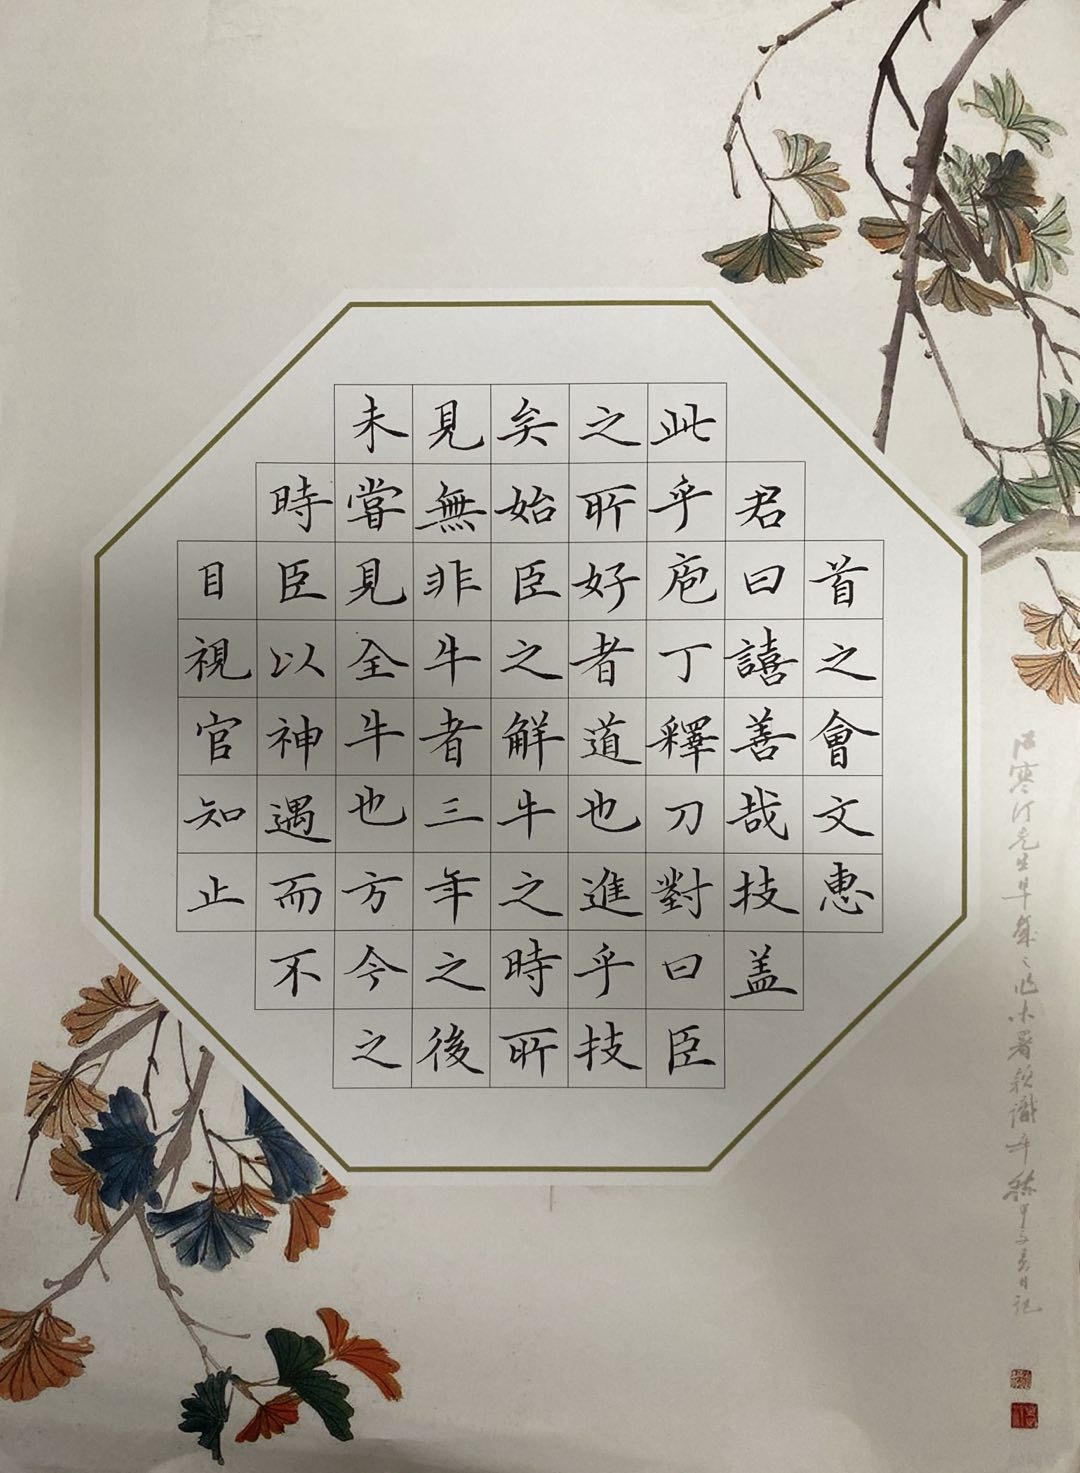 首之會文惠
君曰譆善哉技盖
此乎庖丁釋刀對曰臣
之所好者道也進乎技
矣始臣之解牛之時所
見無非牛者三年之後
未嘗見全牛也方今之
時臣以神遇而不
目視官知止
江寒汀先生早歲之作